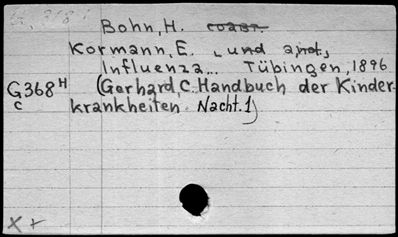 Bohn, H.
Kormann, E. und a.
Influenza... Tübingen, 1896
G368 H (Gerhard, C. Handbuch der Kinder-
c krankheiten. Nacht. 1)
X +